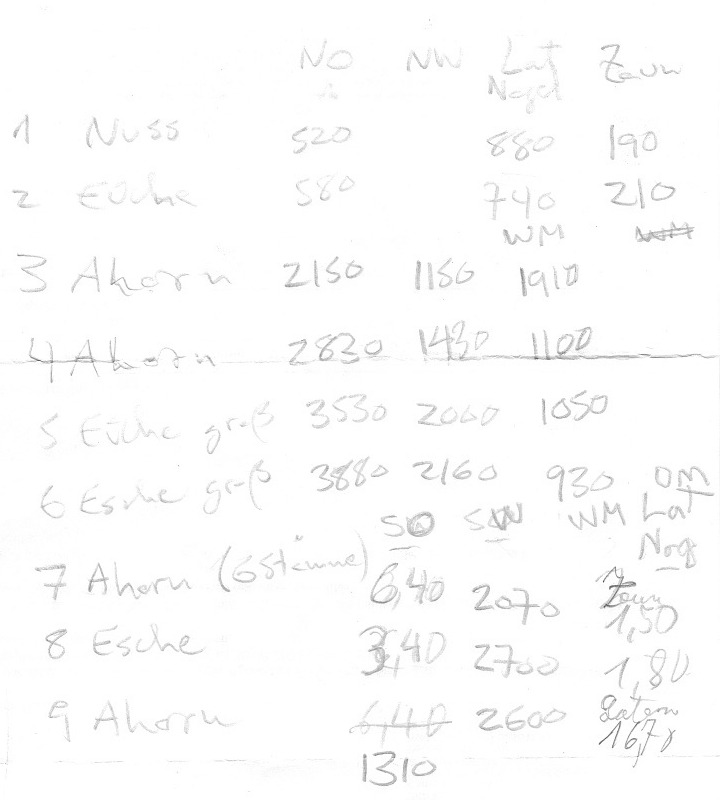 NO NW Lat Zaun
Nagel
1 Nuss 520 880 190
2 Eiche 580 740 210
WM WM
3 Ahorn 2150 1150 1910
4 Ahorn 2830 1430 1100
5 Eiche groß 3530 2060 1050
6 Esche groß 3880 2160 930 OM
SO SW WM Lat
Nag
7 Ahorn (6 Stämme) 6,40 2070 Zaun
1,50
8 Esche 3,40 2700 1,80
9 Ahorn 6,40 2600 Latern
1310 16,78